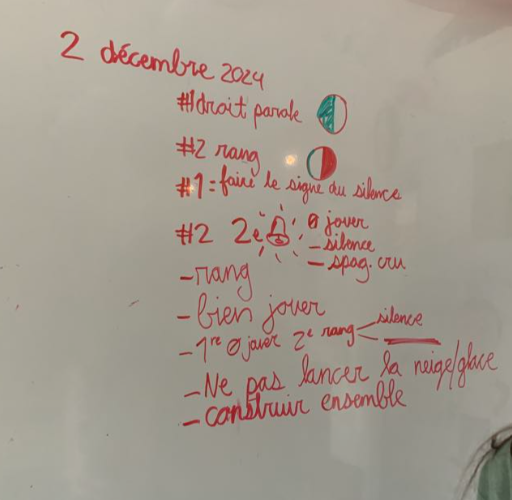 2 décembre 2024
#1 droit parole
#2 rang
#1 = faire le signe du silence
#2 2e 0 jouer
- silence
- spag. cru
- rang
- bien jouer
- 1re 0 jouer 2e rang silence
- Ne pas lancer la neige/glace
- construir ensemble